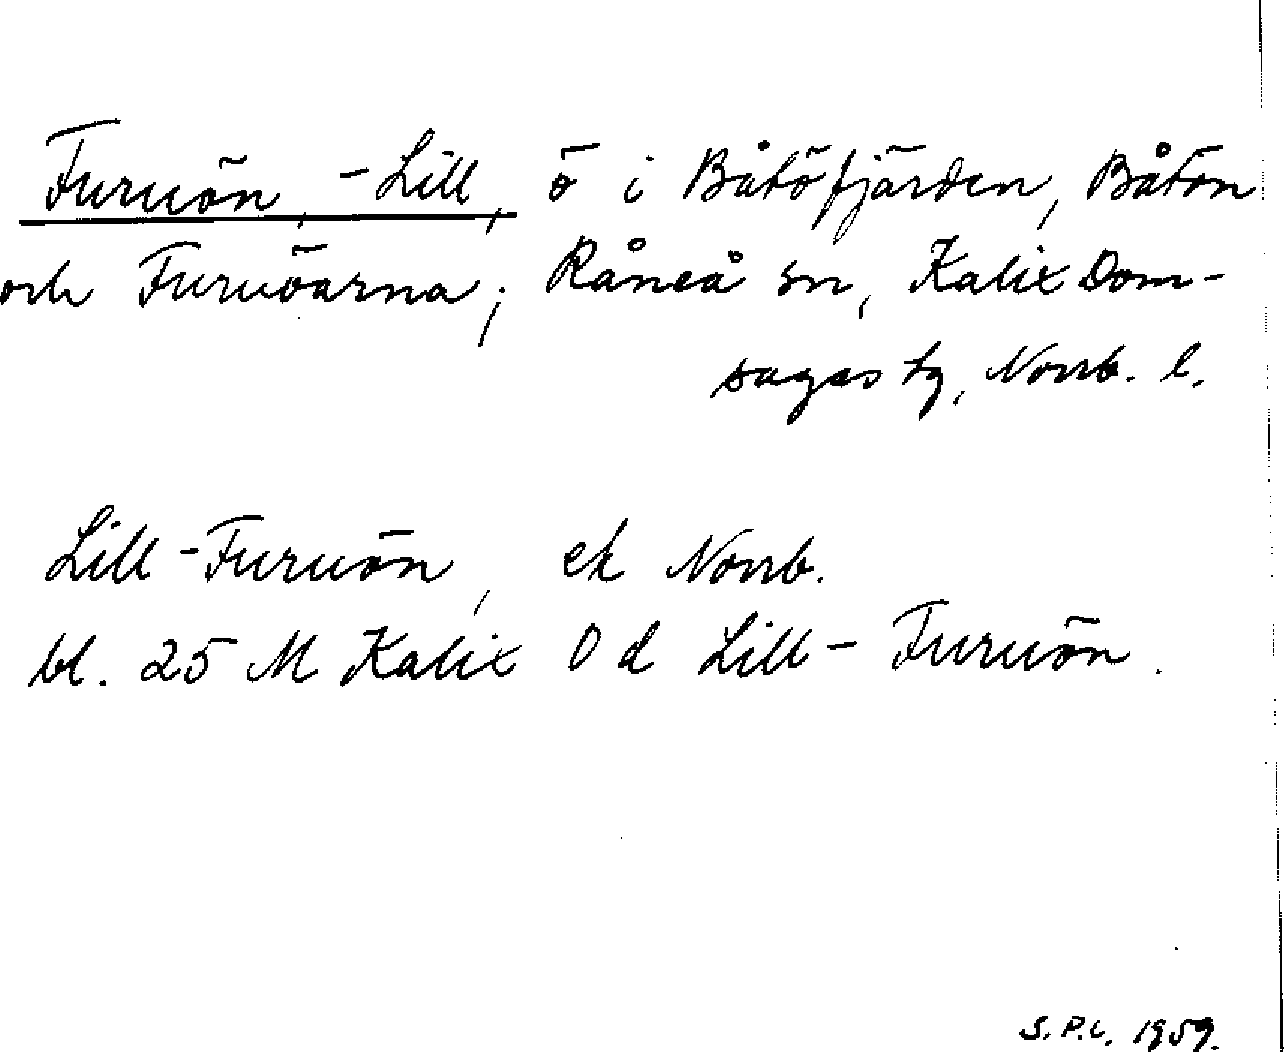 Furuön, -Lill, ö i Båtöfjärden, Båtön
och Furuöarna; Råneå sn, Kalix Dom-
sagas tg, Norrb. l.
Lill-Furuön, ek Norrb.
bl. 25 M Kalix 0 d Lill-Furuön.
S.P.L. 1959.